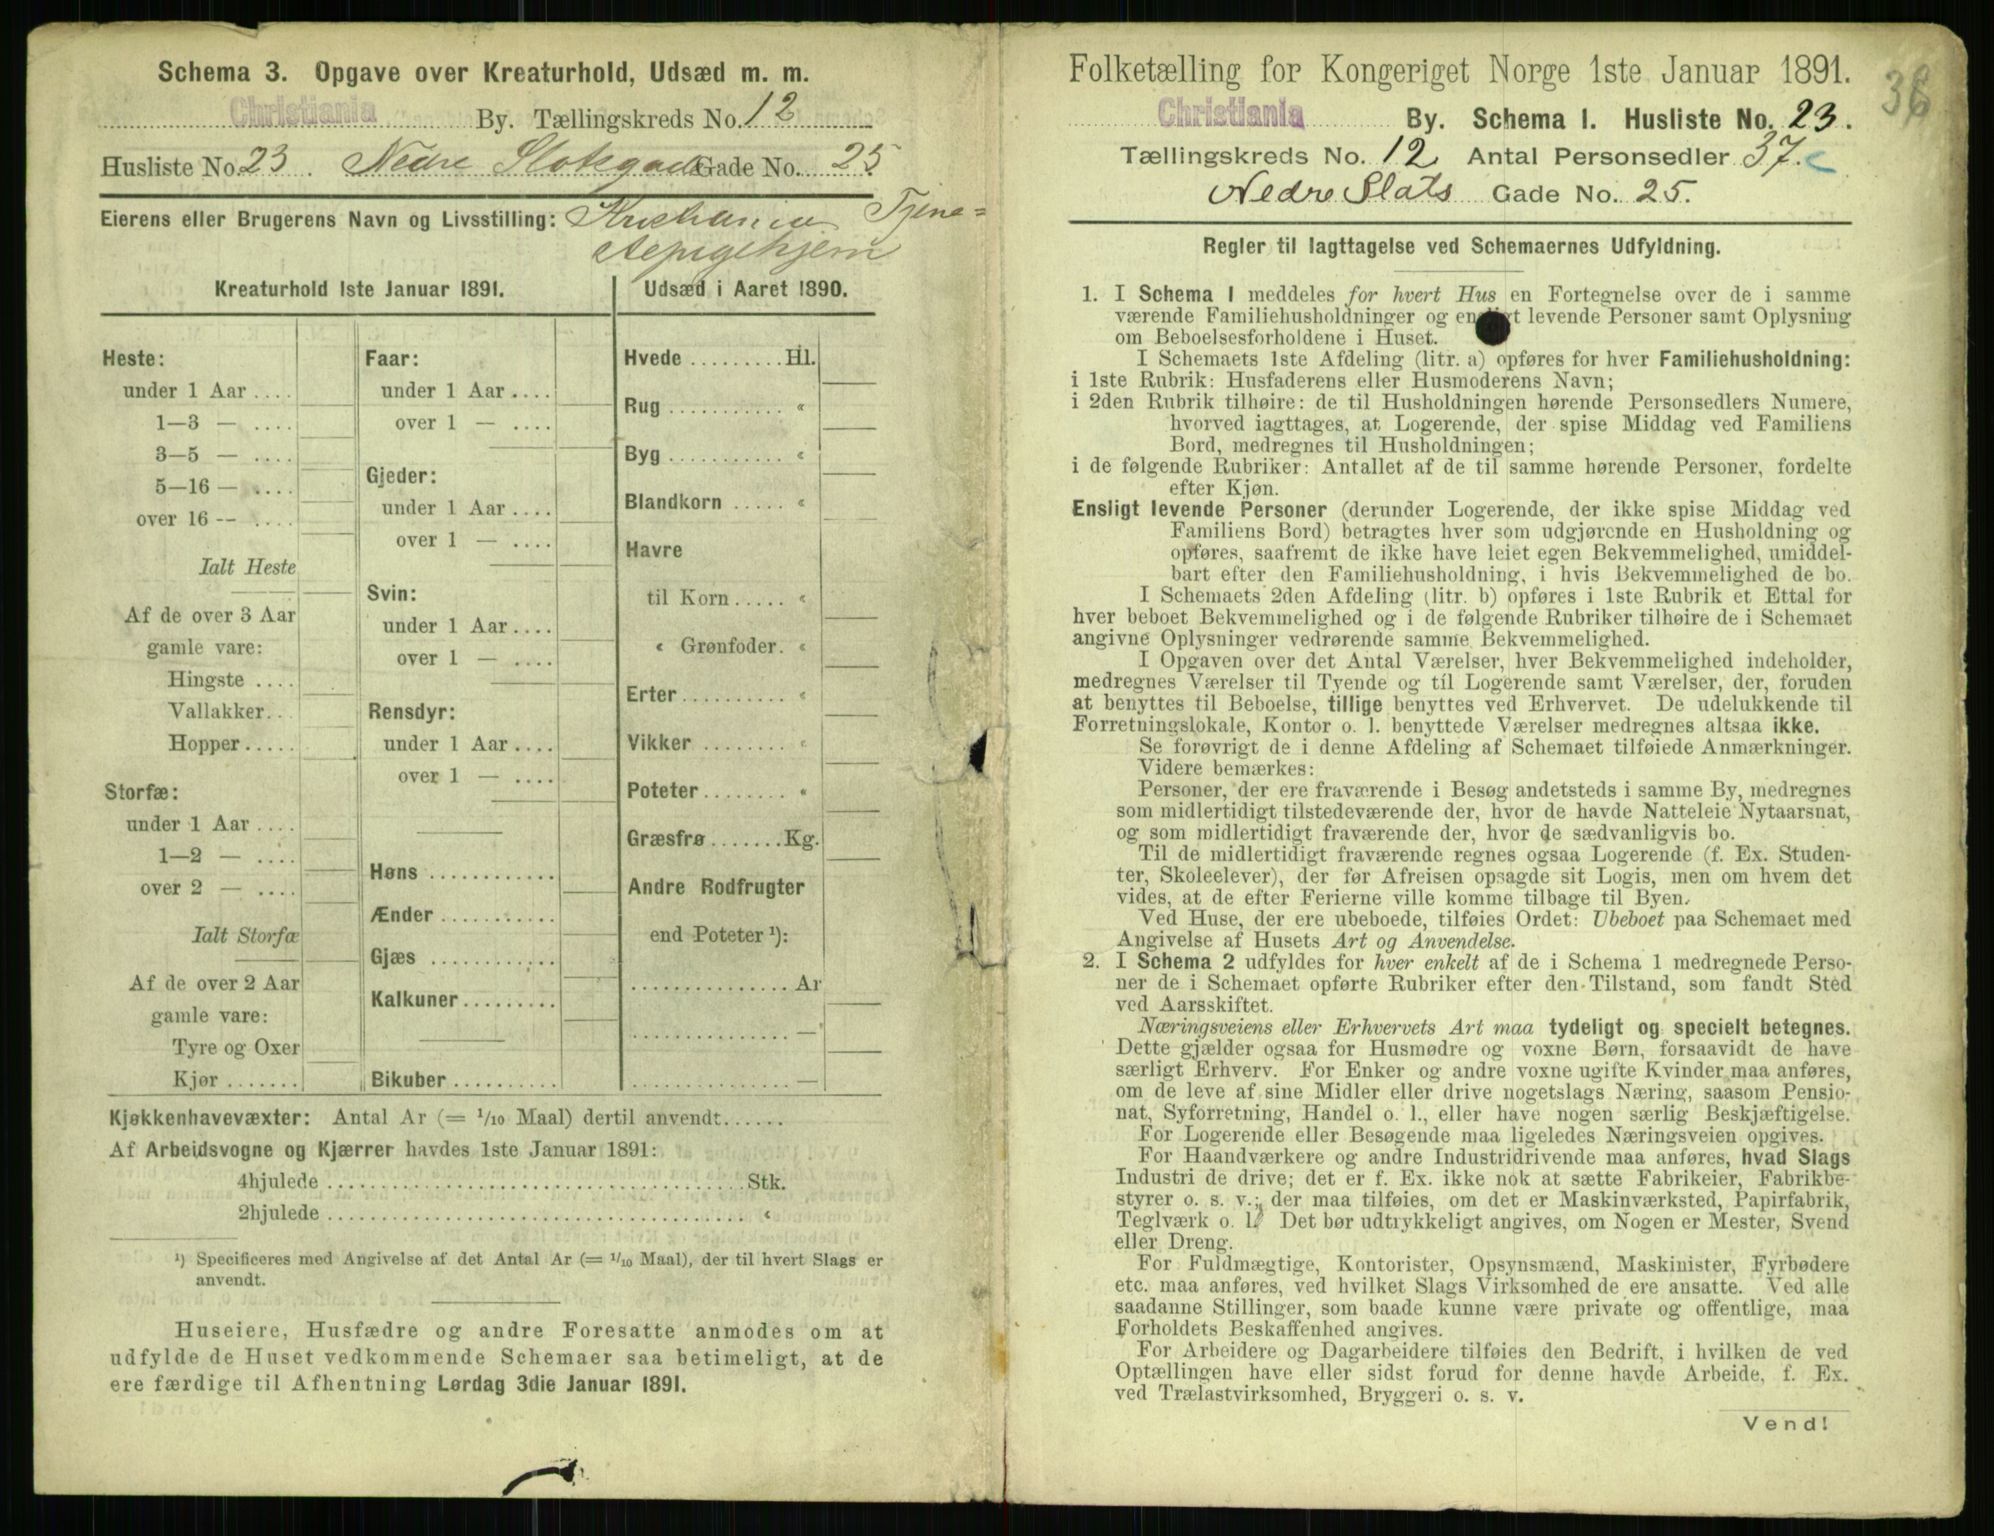 Schema 3. Opgave over Kreaturhold, Udsæd m. m.
Christiania By. Tællingskreds No. 12
Husliste No. 23. Nedre Slotsgade Gade No. 25
Eierens eller Brugerens Navn og Livsstilling: Kristiania Tjene=
stepigehjem
Kreaturhold 1ste Januar 1891.
Heste:
under 1 Aar ....
1—3 — ....
3—5 — ....
5—16 — ....
over 16 -- ....
Ialt Heste
Af de over 3 Aar
gamle vare:
Hingste ....
Vallakker...
Hopper.....
Storfæ:
under 1 Aar ....
1—2 — ....
over 2 — ....
Ialt Storfæ
Af de over 2 Aar
gamle vare:
Tyre og Oxer
Kjør .......
Faar:
under 1 Aar ....
over 1 — ....
Gjeder:
under 1 Aar ....
over 1 — ....
Svin:
under 1 Aar ....
over 1 — ....
Rensdyr:
under 1 Aar ....
over 1 — ....
Høns ............
Ænder ...........
Gjæs ............
Kalkuner.........
Bikuber..........
Udsæd i Aaret 1890.
Hvede .........Hl.
Rug ........... «
Byg ........... «
Blandkorn ..... «
Havre
til Korn ..... «
« Grønfoder. «
Erter .......... «
Vikker ........ «
Poteter ........ «
Græsfrø .......Kg.
Andre Rodfrugter
end Poteter ¹):
............... Ar
............... —
............... —
Kjøkkenhavevæxter: Antal Ar (= 1/10 Maal) dertil anvendt......
Af Arbeidsvogne og Kjærrer havdes 1ste Januar 1891:
4hjulede ........................................ Stk.
2hjulede ........................................ «
¹) Specificeres med Angivelse af det Antal Ar (= 1/10 Maal), der til hvert Slags er
anvendt.
Huseiere, Husfædre og andre Foresatte anmodes om at
udfylde de Huset vedkommende Schemaer saa betimeligt, at de
ere færdige til Afhentning Lørdag 3die Januar 1891.
Folketælling for Kongeriget Norge 1ste Januar 1891.
36
Christiania By. Schema I. Husliste No. 23.
Tællingskreds No. 12 Antal Personsedler 37.
Nedre Slots Gade No. 25.
Regler til Iagttagelse ved Schemaernes Udfyldning.
1. I Schema I meddeles for hvert Hus en Fortegnelse over de i samme
værende Familiehusholdninger og ensligt levende Personer samt Oplysning
om Beboelsesforholdene i Huset.
I Schemaets 1ste Afdeling (litr. a) opføres for hver Familiehusholdning:
i 1ste Rubrik: Husfaderens eller Husmoderens Navn;
i 2den Rubrik tilhøire: de til Husholdningen hørende Personsedlers Numere,
hvorved iagttages, at Logerende, der spise Middag ved Familiens
Bord, medregnes til Husholdningen;
i de følgende Rubriker: Antallet af de til samme hørende Personer, fordelte
efter Kjøn.
Ensligt levende Personer (derunder Logerende, der ikke spise Middag ved
Familiens Bord) betragtes hver som udgjørende en Husholdning og
opføres, saafremt de ikke have leiet egen Bekvemmelighed, umiddel-
bart efter den Familiehusholdning, i hvis Bekvemmelighed de bo.
I Schemaets 2den Afdeling (litr. b) opføres i 1ste Rubrik et Ettal for
hver beboet Bekvemmelighed og i de følgende Rubriker tilhøire de i Schemaet
angivne Oplysninger vedrørende samme Bekvemmelighed.
I Opgaven over det Antal Værelser, hver Bekvemmelighed indeholder,
medregnes Værelser til Tyende og til Logerende samt Værelser, der, foruden
at benyttes til Beboelse, tillige benyttes ved Erhvervet. De udelukkende til
Forretningslokale, Kontor o. l. benyttede Værelser medregnes altsaa ikke.
Se forøvrigt de i denne Afdeling af Schemaet tilføiede Anmærkninger.
Videre bemærkes:
Personer, der ere fraværende i Besøg andetsteds i samme By, medregnes
som midlertidigt tilstedeværende der, hvor de havde Natteleie Nytaarsnat,
og som midlertidigt fraværende der, hvor de sædvanligvis bo.
Til de midlertidigt fraværende regnes ogsaa Logerende (f. Ex. Studen-
ter, Skoleelever), der før Afreisen opsagde sit Logis, men om hvem det
vides, at de efter Ferierne ville komme tilbage til Byen.
Ved Huse, der ere ubeboede, tilføies Ordet: Ubeboet paa Schemaet med
Angivelse af Husets Art og Anvendelse.
2. I Schema 2 udfyldes for hver enkelt af de i Schema 1 medregnede Perso-
ner de i Schemaet opførte Rubriker efter den Tilstand, som fandt Sted
ved Aarsskiftet.
Næringsveiens eller Erhvervets Art maa tydeligt og specielt betegnes.
Dette gjælder ogsaa for Husmødre og voxne Børn, forsaavidt de have
særligt Erhverv. For Enker og andre voxne ugifte Kvinder maa anføres,
om de leve af sine Midler eller drive nogetslags Næring, saasom Pensio-
nat, Syforretning, Handel o. l., eller have nogen særlig Beskjæftigelse.
For Logerende eller Besøgende maa ligeledes Næringsveien opgives.
For Haandværkere og andre Industridrivende maa anføres, hvad Slags
Industri de drive; det er f. Ex. ikke nok at sætte Fabrikeier, Fabrikbe-
styrer o. s. v.; der maa tilføies, om det er Maskinværksted, Papirfabrik,
Teglværk o. l. Det bør udtrykkeligt angives, om Nogen er Mester, Svend
eller Dreng.
For Fuldmægtige, Kontorister, Opsynsmænd, Maskinister, Fyrbødere
etc. maa anføres, ved hvilket Slags Virksomhed de ere ansatte. Ved alle
saadanne Stillinger, som baade kunne være private og offentlige, maa
Forholdets Beskaffenhed angives.
For Arbeidere og Dagarbeidere tilføies den Bedrift, i hvilken de ved
Optællingen have eller sidst forud for denne havde Arbeide, f. Ex.
ved Trælastvirksomhed, Bryggeri o. s. v.
Vend!